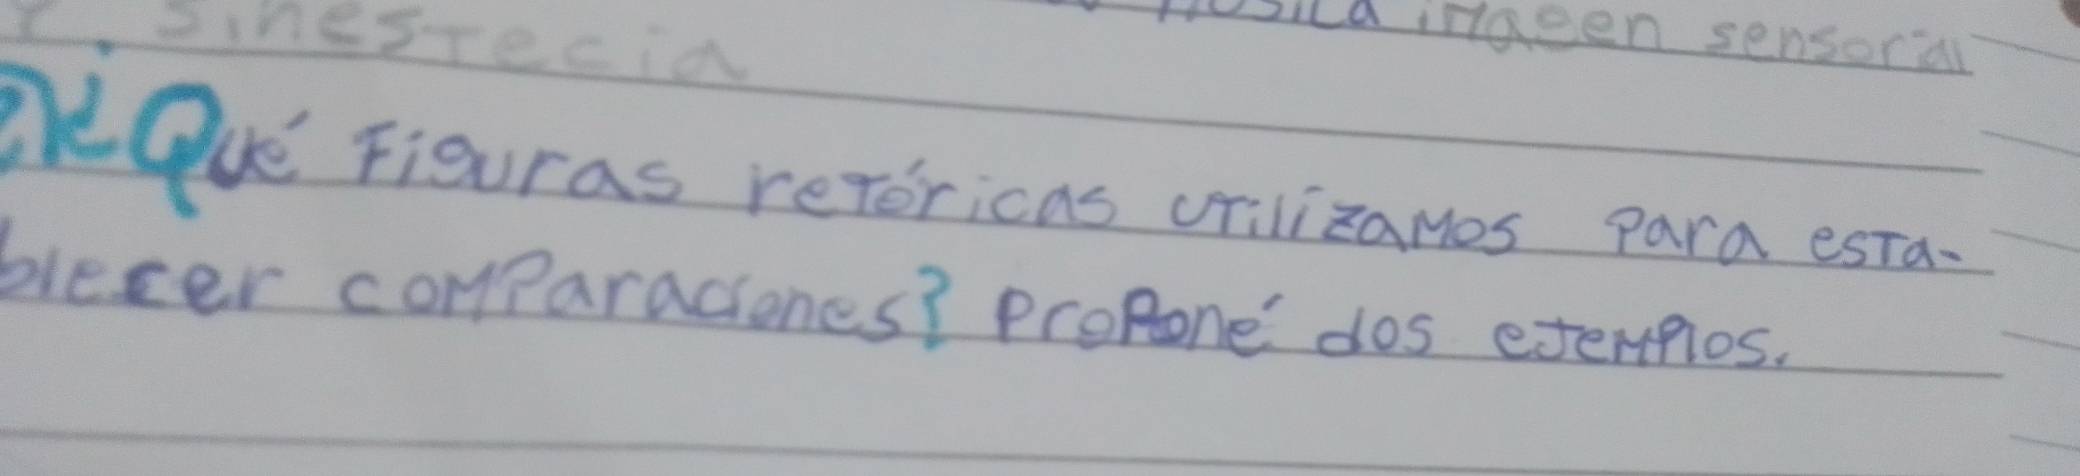 sinestecia
imagen sensorial
¿Qué Figuras retóricas utilizamos para esta-
blecer comparaciones? Proponé dos ejemplos.